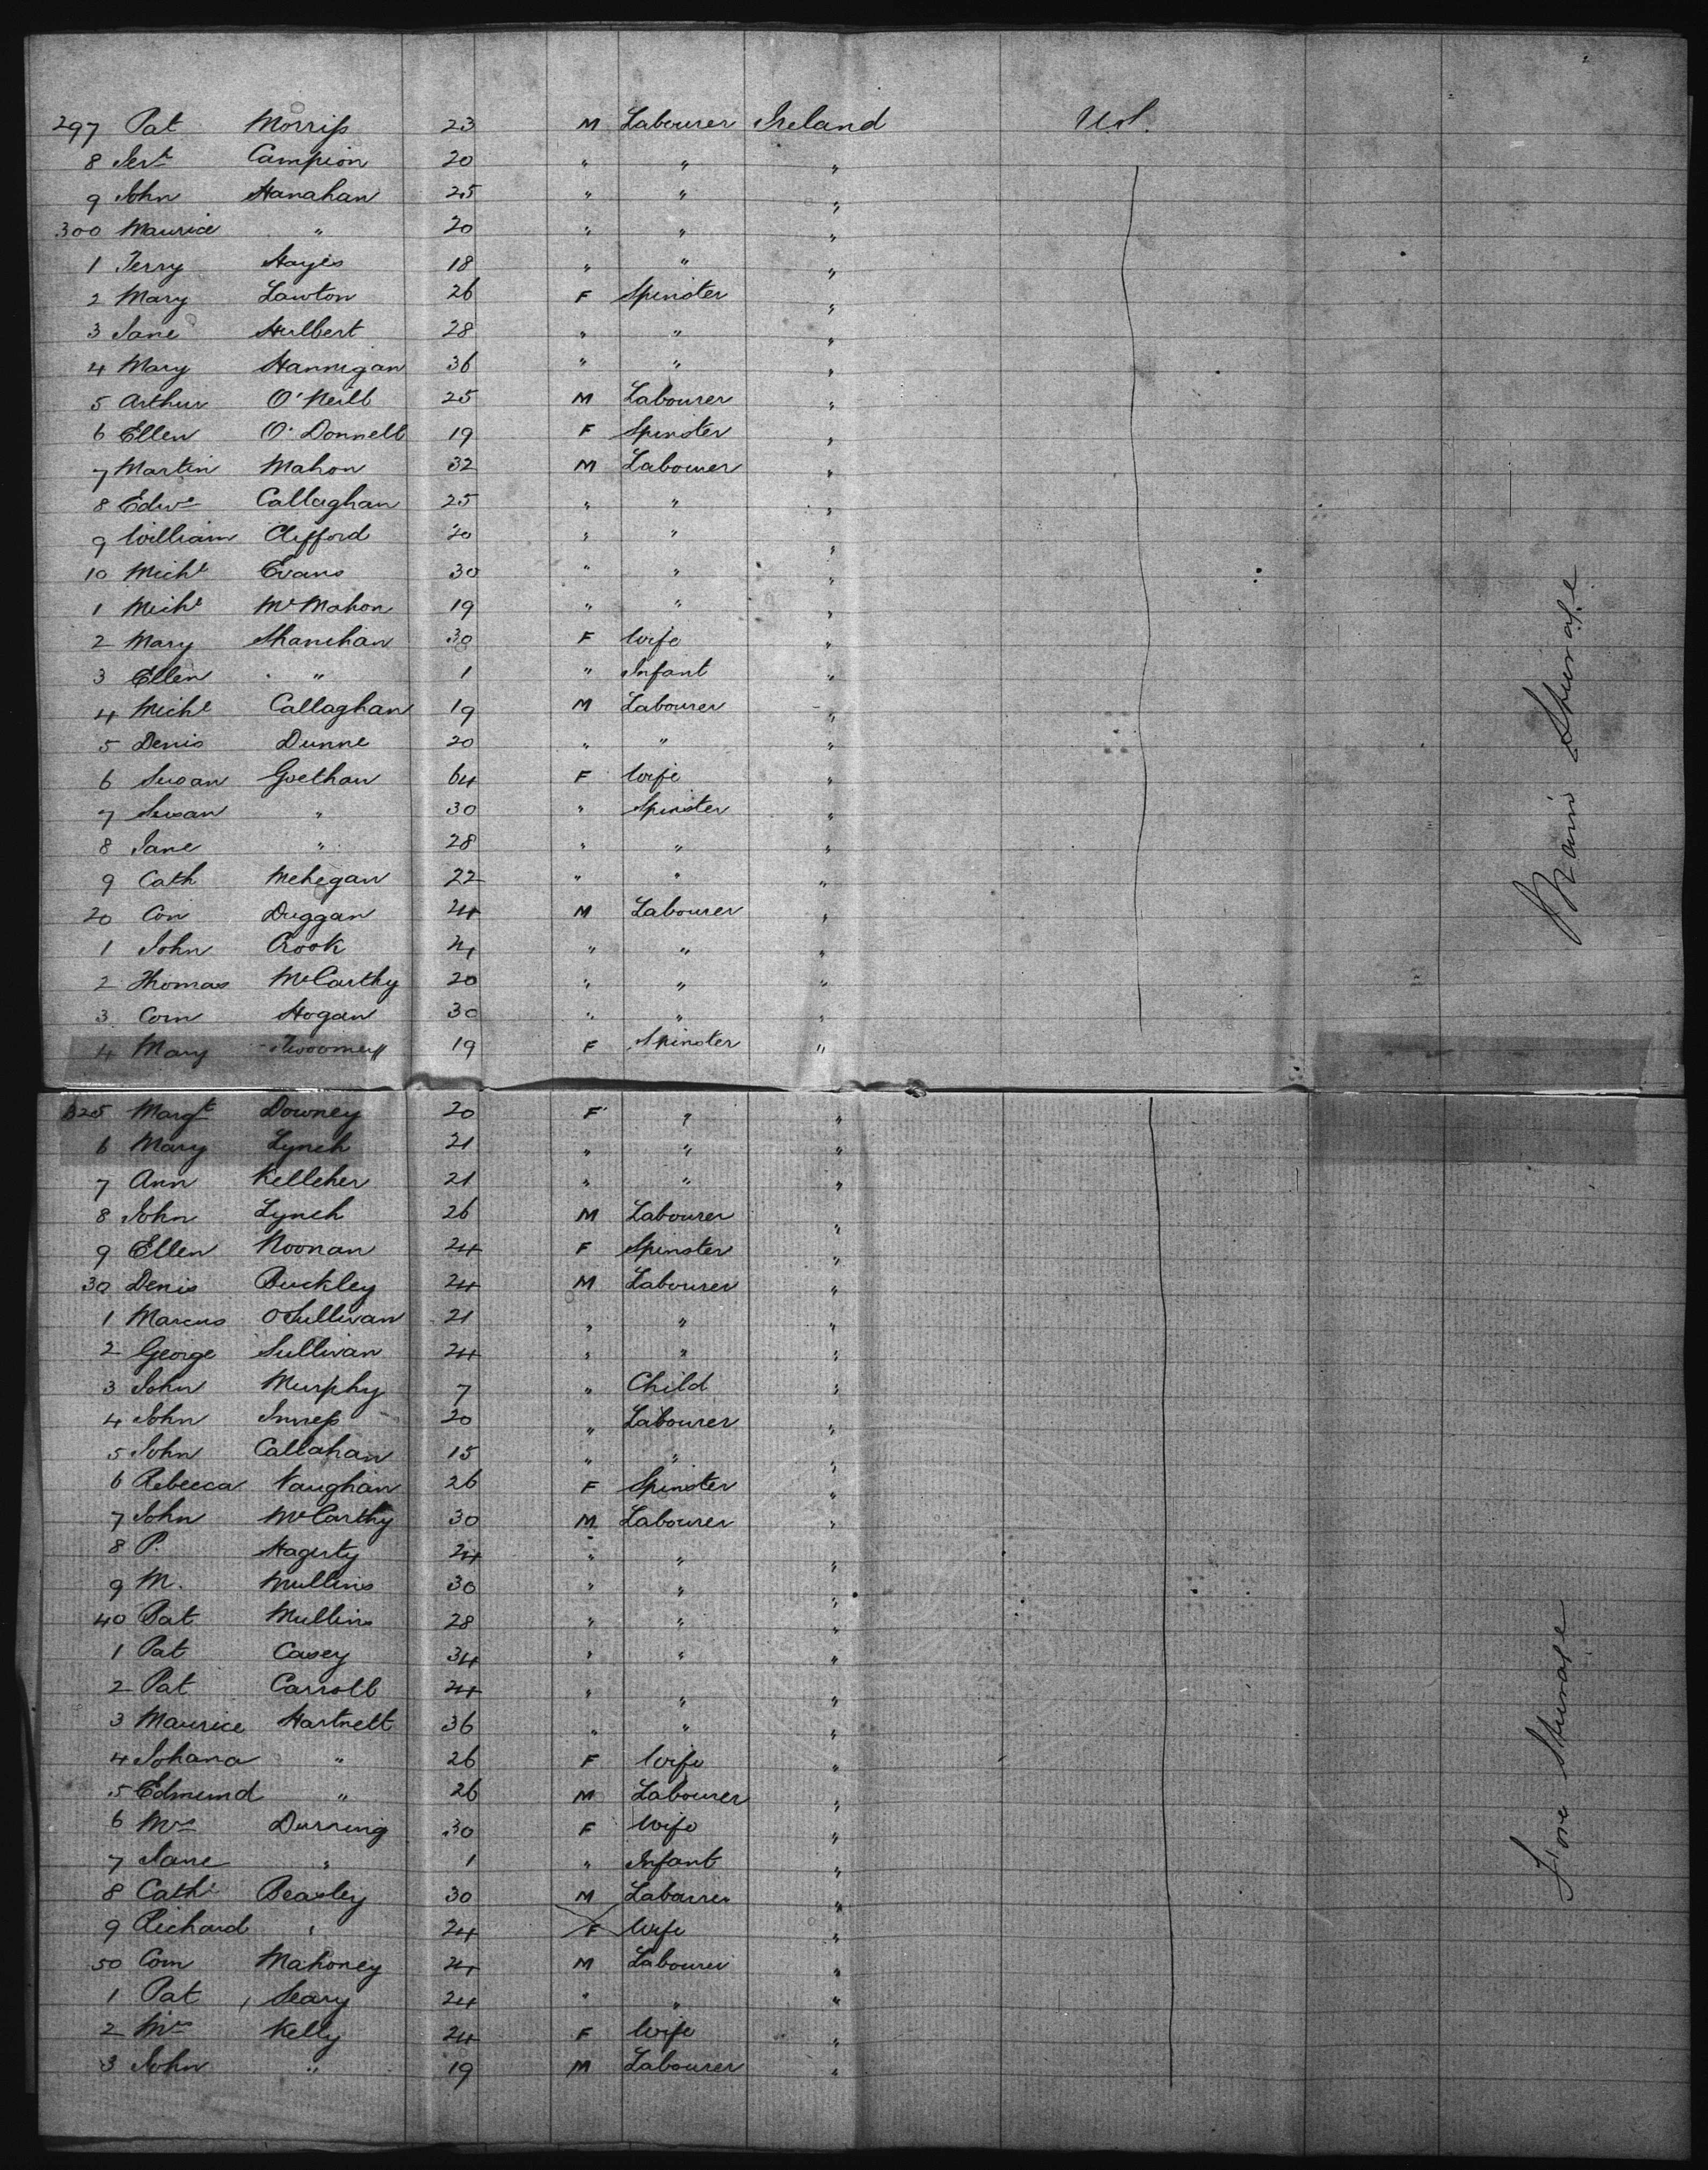 297 Pat Morriss 23 M Labourer Ireland U.S.
8 Jert Campion 20 " " "
9 John Hanahan 25 " " "
300 Maurice " 20 " " "
1 Jerry Hayes 18 " " "
2 Mary Lawton 26 F Spinster "
3 Jane Hulbert 28 " " "
4 Mary Hannigan 36 " " "
5 Arthur O'Neill 25 M Labourer "
6 Ellen O'Donnell 19 F Spinster "
7 Martin Mahon 32 M Labourer "
8 Edwd Callaghan 25 " " "
9 William Clifford 20 " " "
10 Michl Evans 30 " " "
1 Michl McMahon 19 " " "
2 Mary Shanehan 30 F Wife "
3 Ellen " 1 " Infant "
4 Michl Callaghan 19 M Labourer "
5 Denis Dunne 20 " " "
6 Susan Goethan 64 F Wife "
7 Susan " 30 " Spinster "
8 Jane " 28 " " "
9 Cath Mehegan 22 " " "
20 Con Duggan 24 M Labourer "
1 John Crook 21 " " "
2 Thomas McCarthy 20 " " "
3 Corn Hogan 30 " " "
4 Mary Twoomey 19 F Spinster "
325 Margt Downey 20 F " "
6 Mary Lynch 21 " " "
7 Ann Kelleher 21 " " "
8 John Lynch 26 M Labourer "
9 Ellen Noonan 24 F Spinster "
30 Denis Buckley 24 M Labourer "
1 Marcus OSullivan 21 " " "
2 George Sullivan 24 " " "
3 John Murphy 7 " Child "
4 John Inness 20 " Labourer "
5 John Callahan 15 " " "
6 Rebecca Vaughan 26 F Spinster "
7 John McCarthy 30 M Labourer "
8 P. Hagerty 24 " " "
9 M. Mullins 30 " " "
40 Pat Mullins 28 " " "
1 Pat Casey 34 " " "
2 Pat Carroll 24 " " "
3 Maurice Hartnett 36 " " "
4 Johana " 26 F Wife "
5 Edmund " 26 M Labourer "
6 Mrs Durning 30 F Wife "
7 Jane " 1 " Infant "
8 Cath Beasley 30 M Labourer "
9 Richard " 24 F Wife "
50 Corn Mahoney 24 M Labourer "
1 Pat Leary 24 " " "
2 Mrs Kelly 24 F Wife "
3 John " 19 M Labourer "
Main Steerage
Fore Steerage